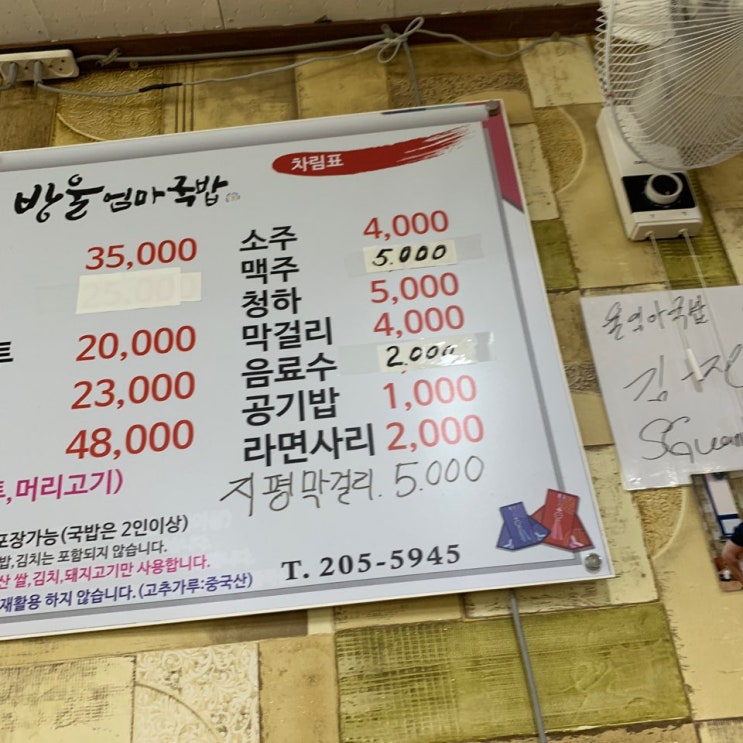 차림표
방울엄마국밥
35,000
25.000
트 20,000
23,000
48,000
트,머리고기)
소주 4,000
맥주 5.000
청하 5,000
막걸리 4,000
음료수 2.000
공기밥 1,000
라면사리 2,000
지평막걸리. 5.000
포장가능(국밥은 2인이상)
밥,김치는 포함되지 않습니다.
산 쌀,김치,돼지고기만 사용합니다.
재활용 하지 않습니다.(고추가루:중국산)
T. 205-5945
울엄마국밥
김